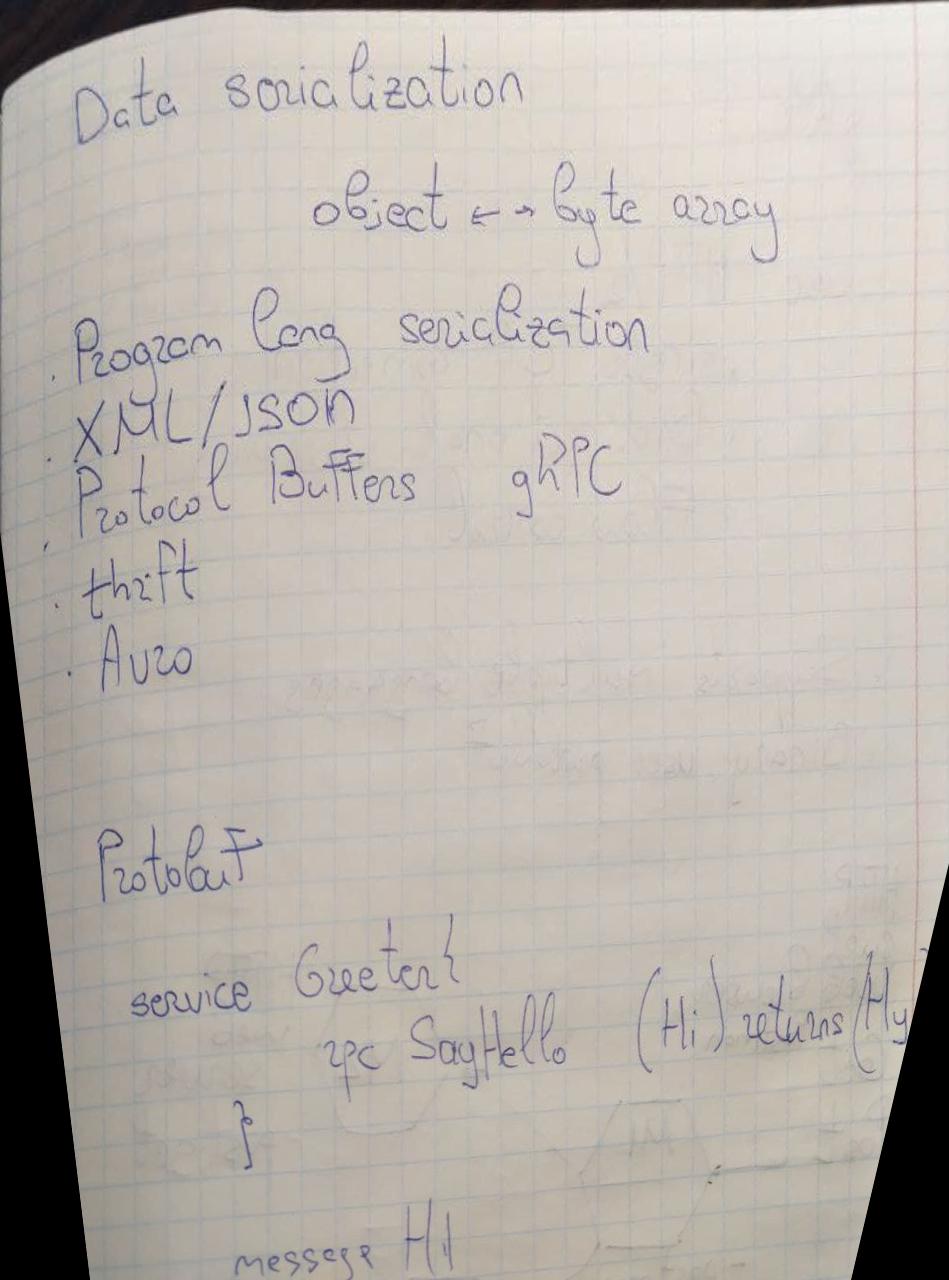 Data serialization
object ←→ byte array
. Program lang serialization
. XML/JSON
. Protocol Buffers gRPC
. thrift
. Avro
Protobuf
service Greeter{
rpc SayHello (Hi) returns (Hy
}
message Hi